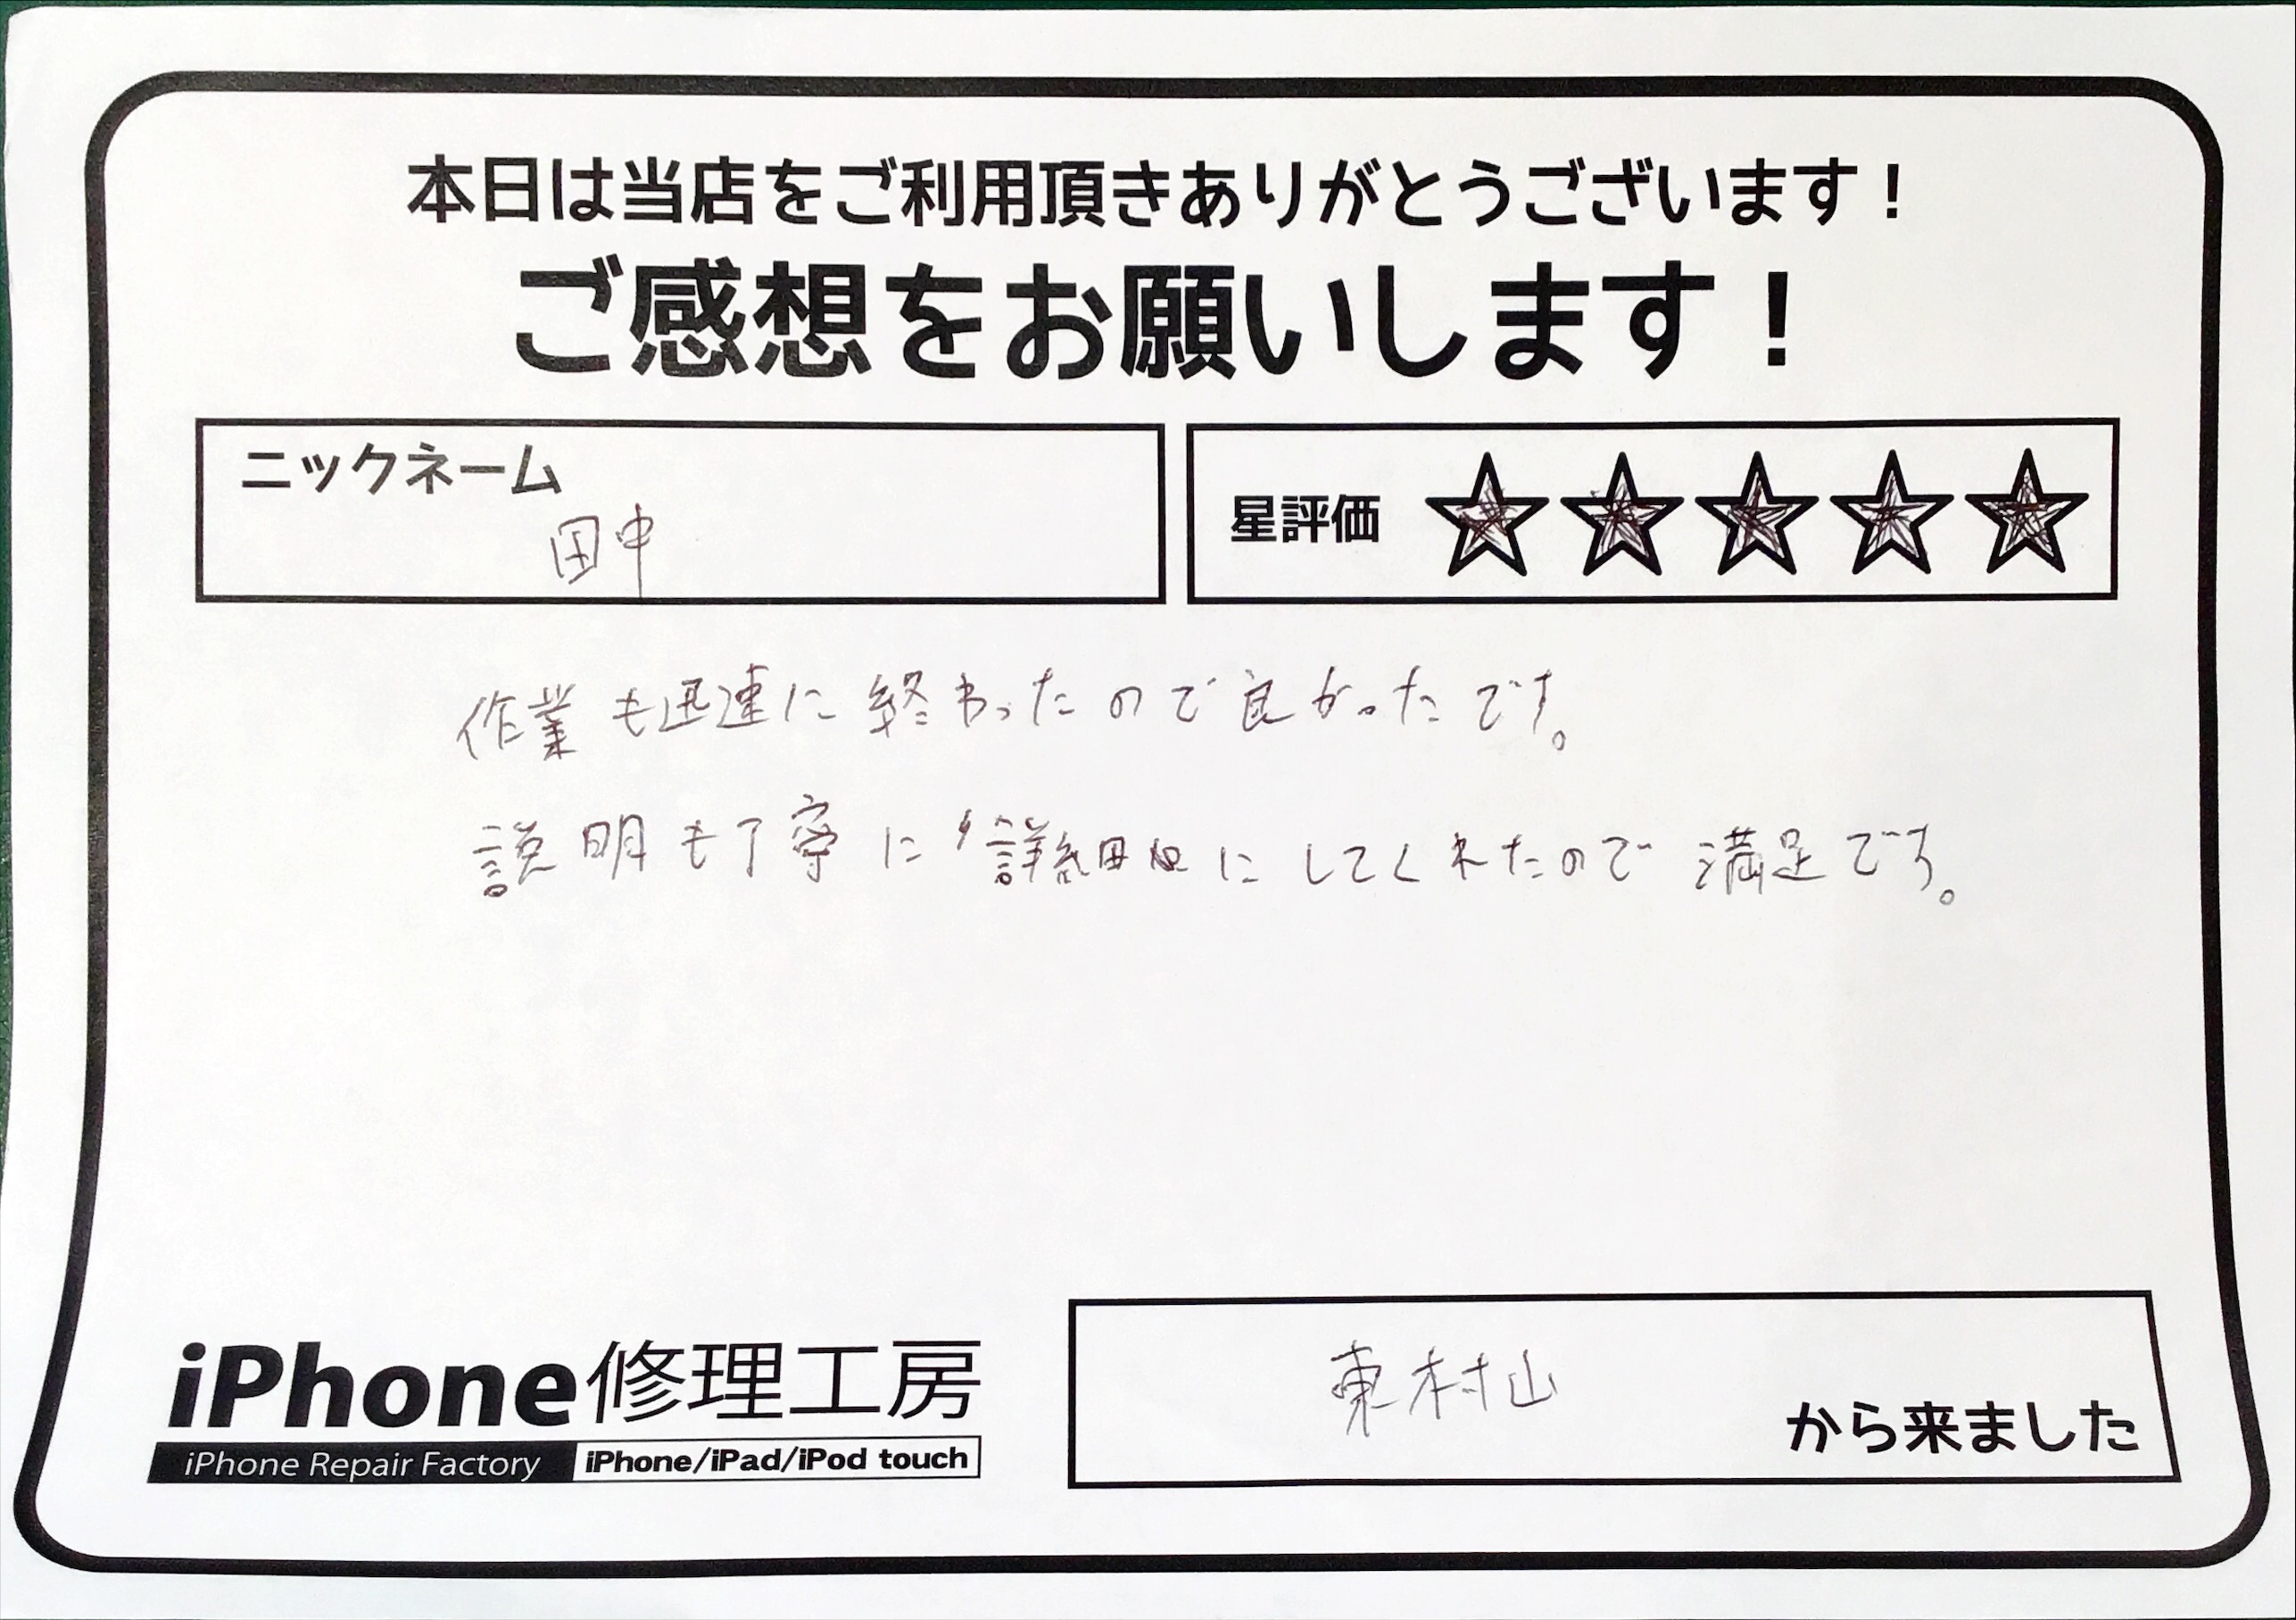 本日は当店をご利用頂きありがとうございます!
ご感想をお願いします!
ニックネーム
田中
星評価 ★★★★★
作業も迅速に終わったので良かったです。
説明も丁寧に詳細にしてくれたので満足です。
iPhone修理工房
iPhone Repair Factory iPhone/iPad/iPod touch
東村山
から来ました